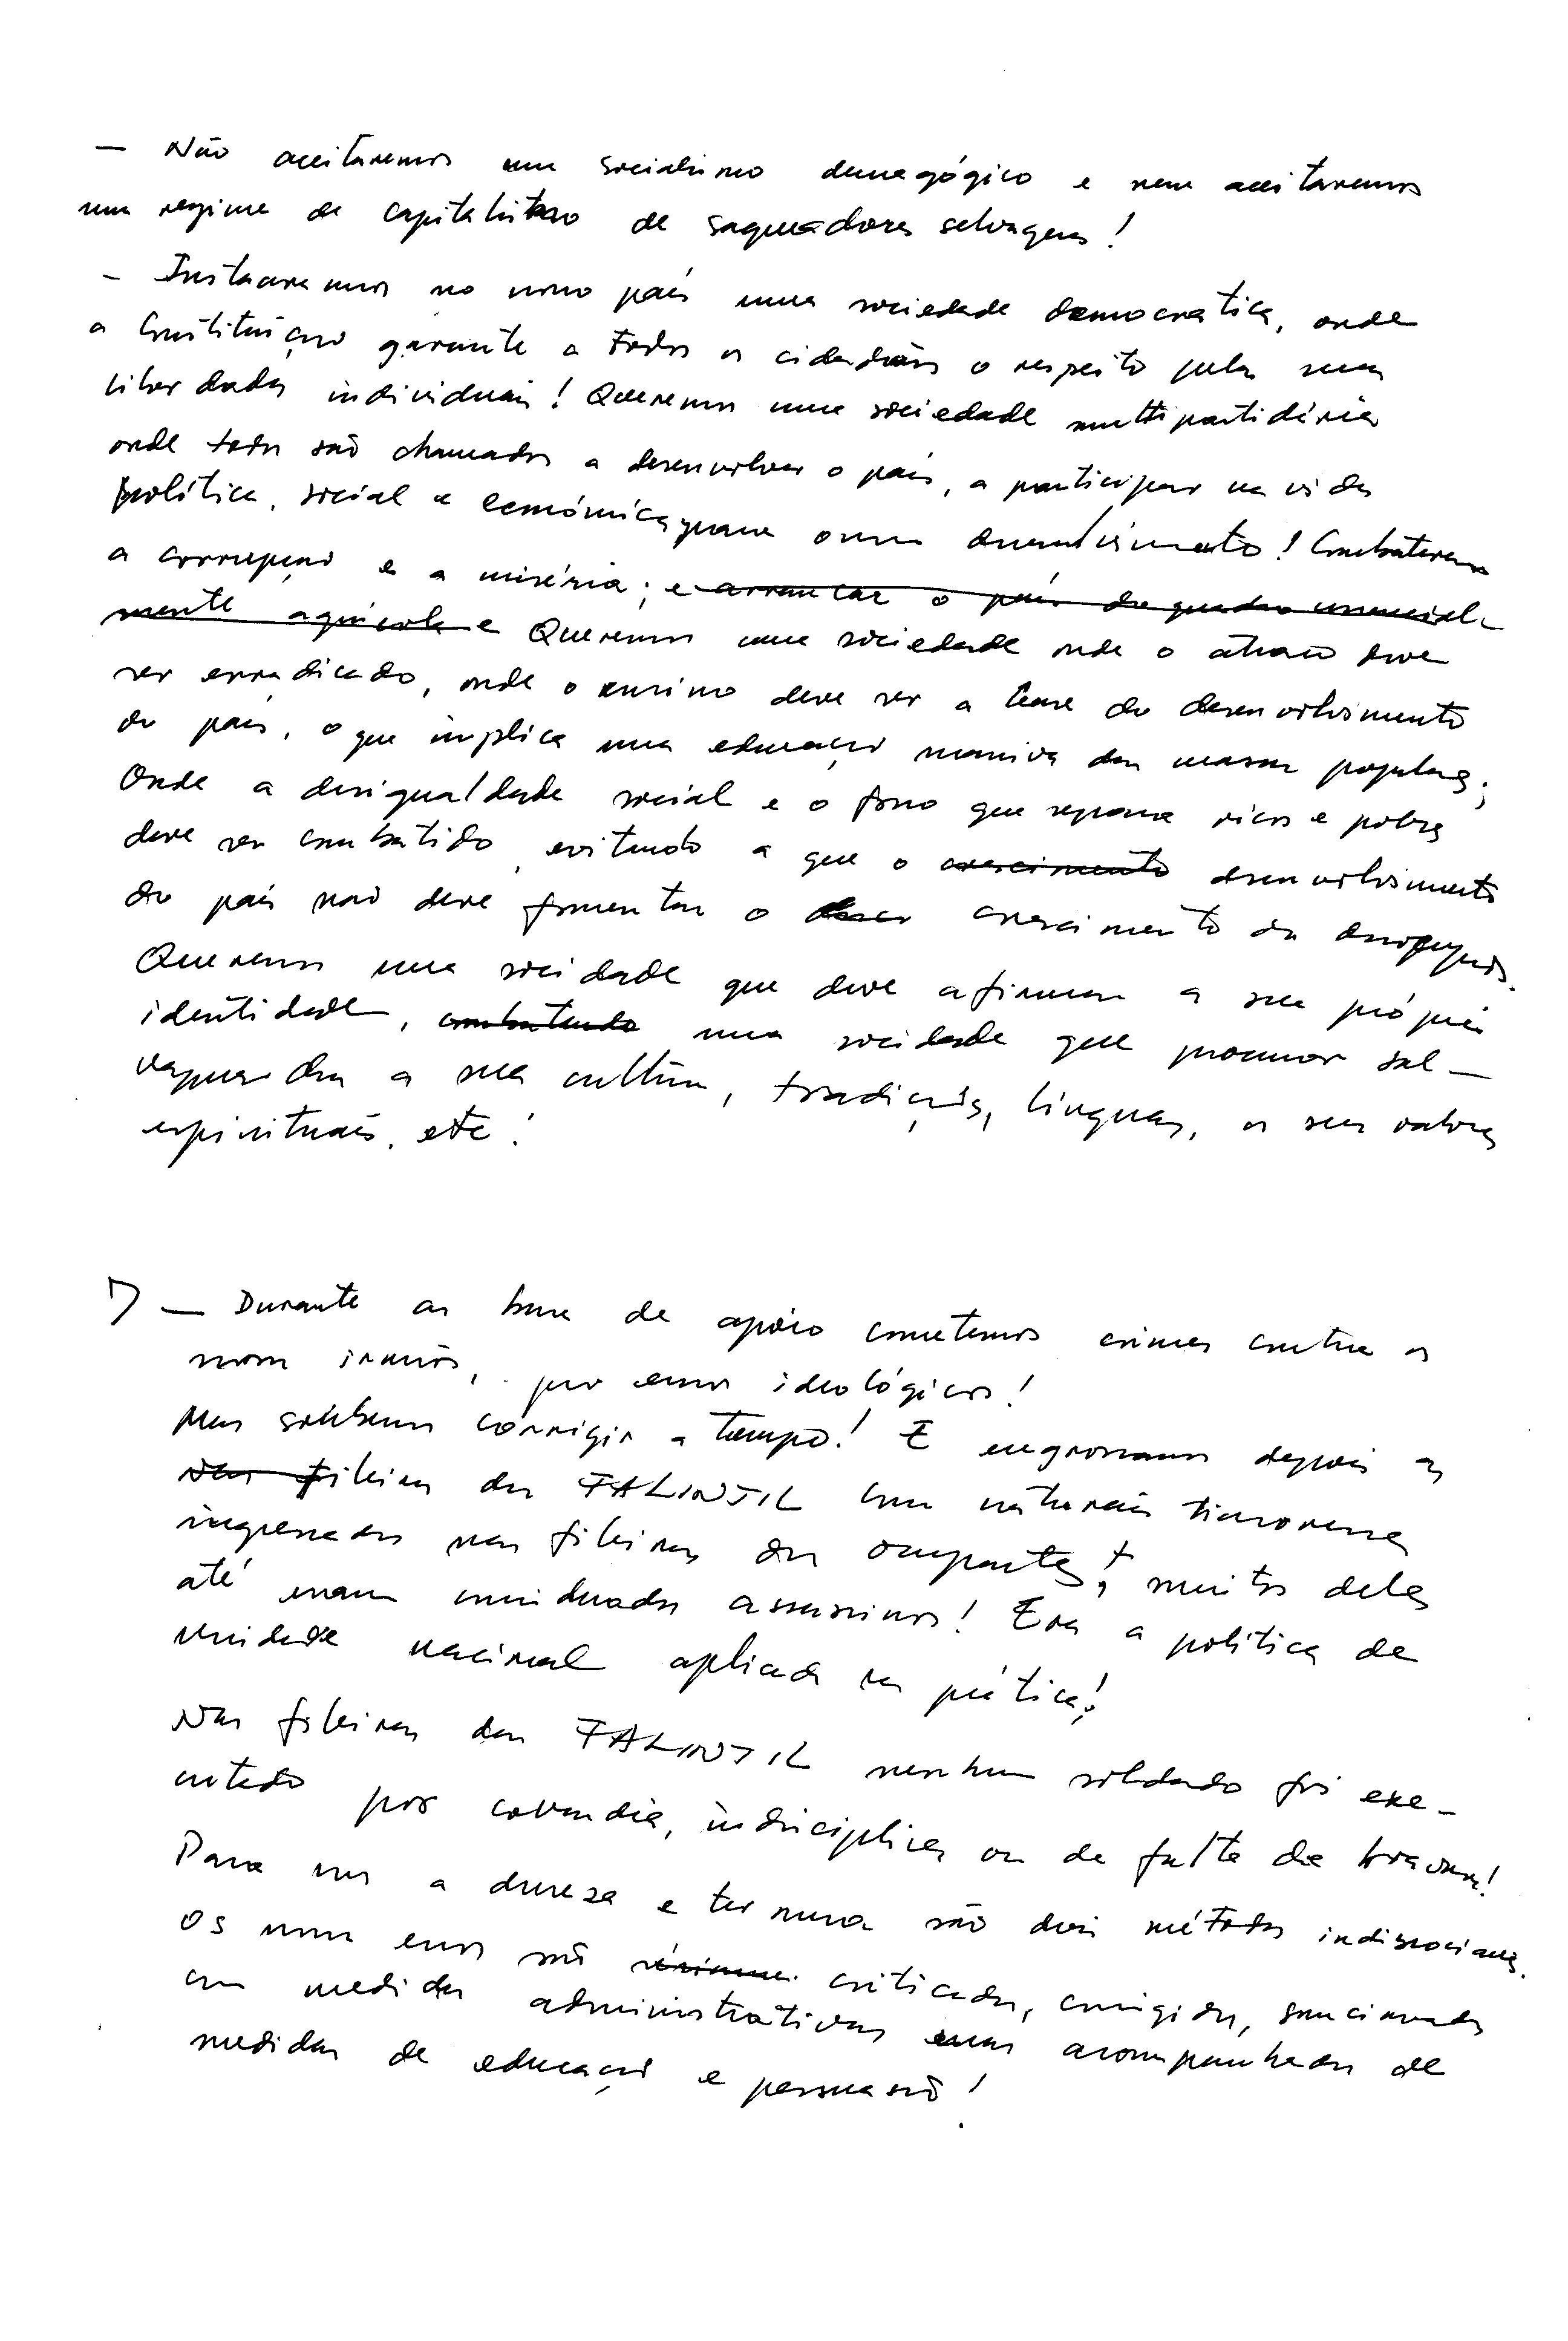 — Não aceitaremos um socialismo demagógico e nem aceitaremos
um regime de capitalismo de saqueadores selvagens!
- Instauraremos no nosso país uma sociedade democrática, onde
a Constituição garante a todos os cidadãos o respeito pelas suas
liberdades individuais! Queremos uma sociedade multipartidária
onde todos são chamados a desenvolver o país, a participar na vida
política, social e económica para o seu desenvolvimento! Combateremos
a corrupção e a miséria; e arrancar o país do quadro essencial-
mente agrícola e Queremos uma sociedade onde o atraso deve
ser erradicado, onde o ensino deve ser a base do desenvolvimento
do país, o que implica uma educação massiva das massas populares;
Onde a desigualdade social e o fosso que separa ricos e pobres
deve ser combatido, evitando a que o crescimento desenvolvimento
do país não deve fomentar o crescimento do desemprego.
Queremos uma sociedade que deve afirmar a sua própria
identidade, combatendo uma sociedade que procurar sal-
vaguardar a sua cultura, tradições, línguas, os seus valores
espirituais, etc!
7 — Durante as base de apoio cometemos crimes contra os
nossos irmãos, por erros ideológicos!
Mas soubemos corrigir a tempo! E engrossamos depois as
Nas fileiras das FALINTIL com naturais timorenses
ingressados nas fileiras dos ocupantes, muitos deles
até eram considerados assassinos! Era a política de
Unidade nacional aplicada na prática!
Nas fileiras das FALINTIL nenhum soldado foi exe-
cutado por cobardia, indisciplina ou de falta de bravura!
Para nós a dureza e ternura são dois métodos indissociáveis.
Os nossos erros são criticados, corrigidos, sancionados
com medidas administrativas mas acompanhadas de
medidas de educação e persuasão!